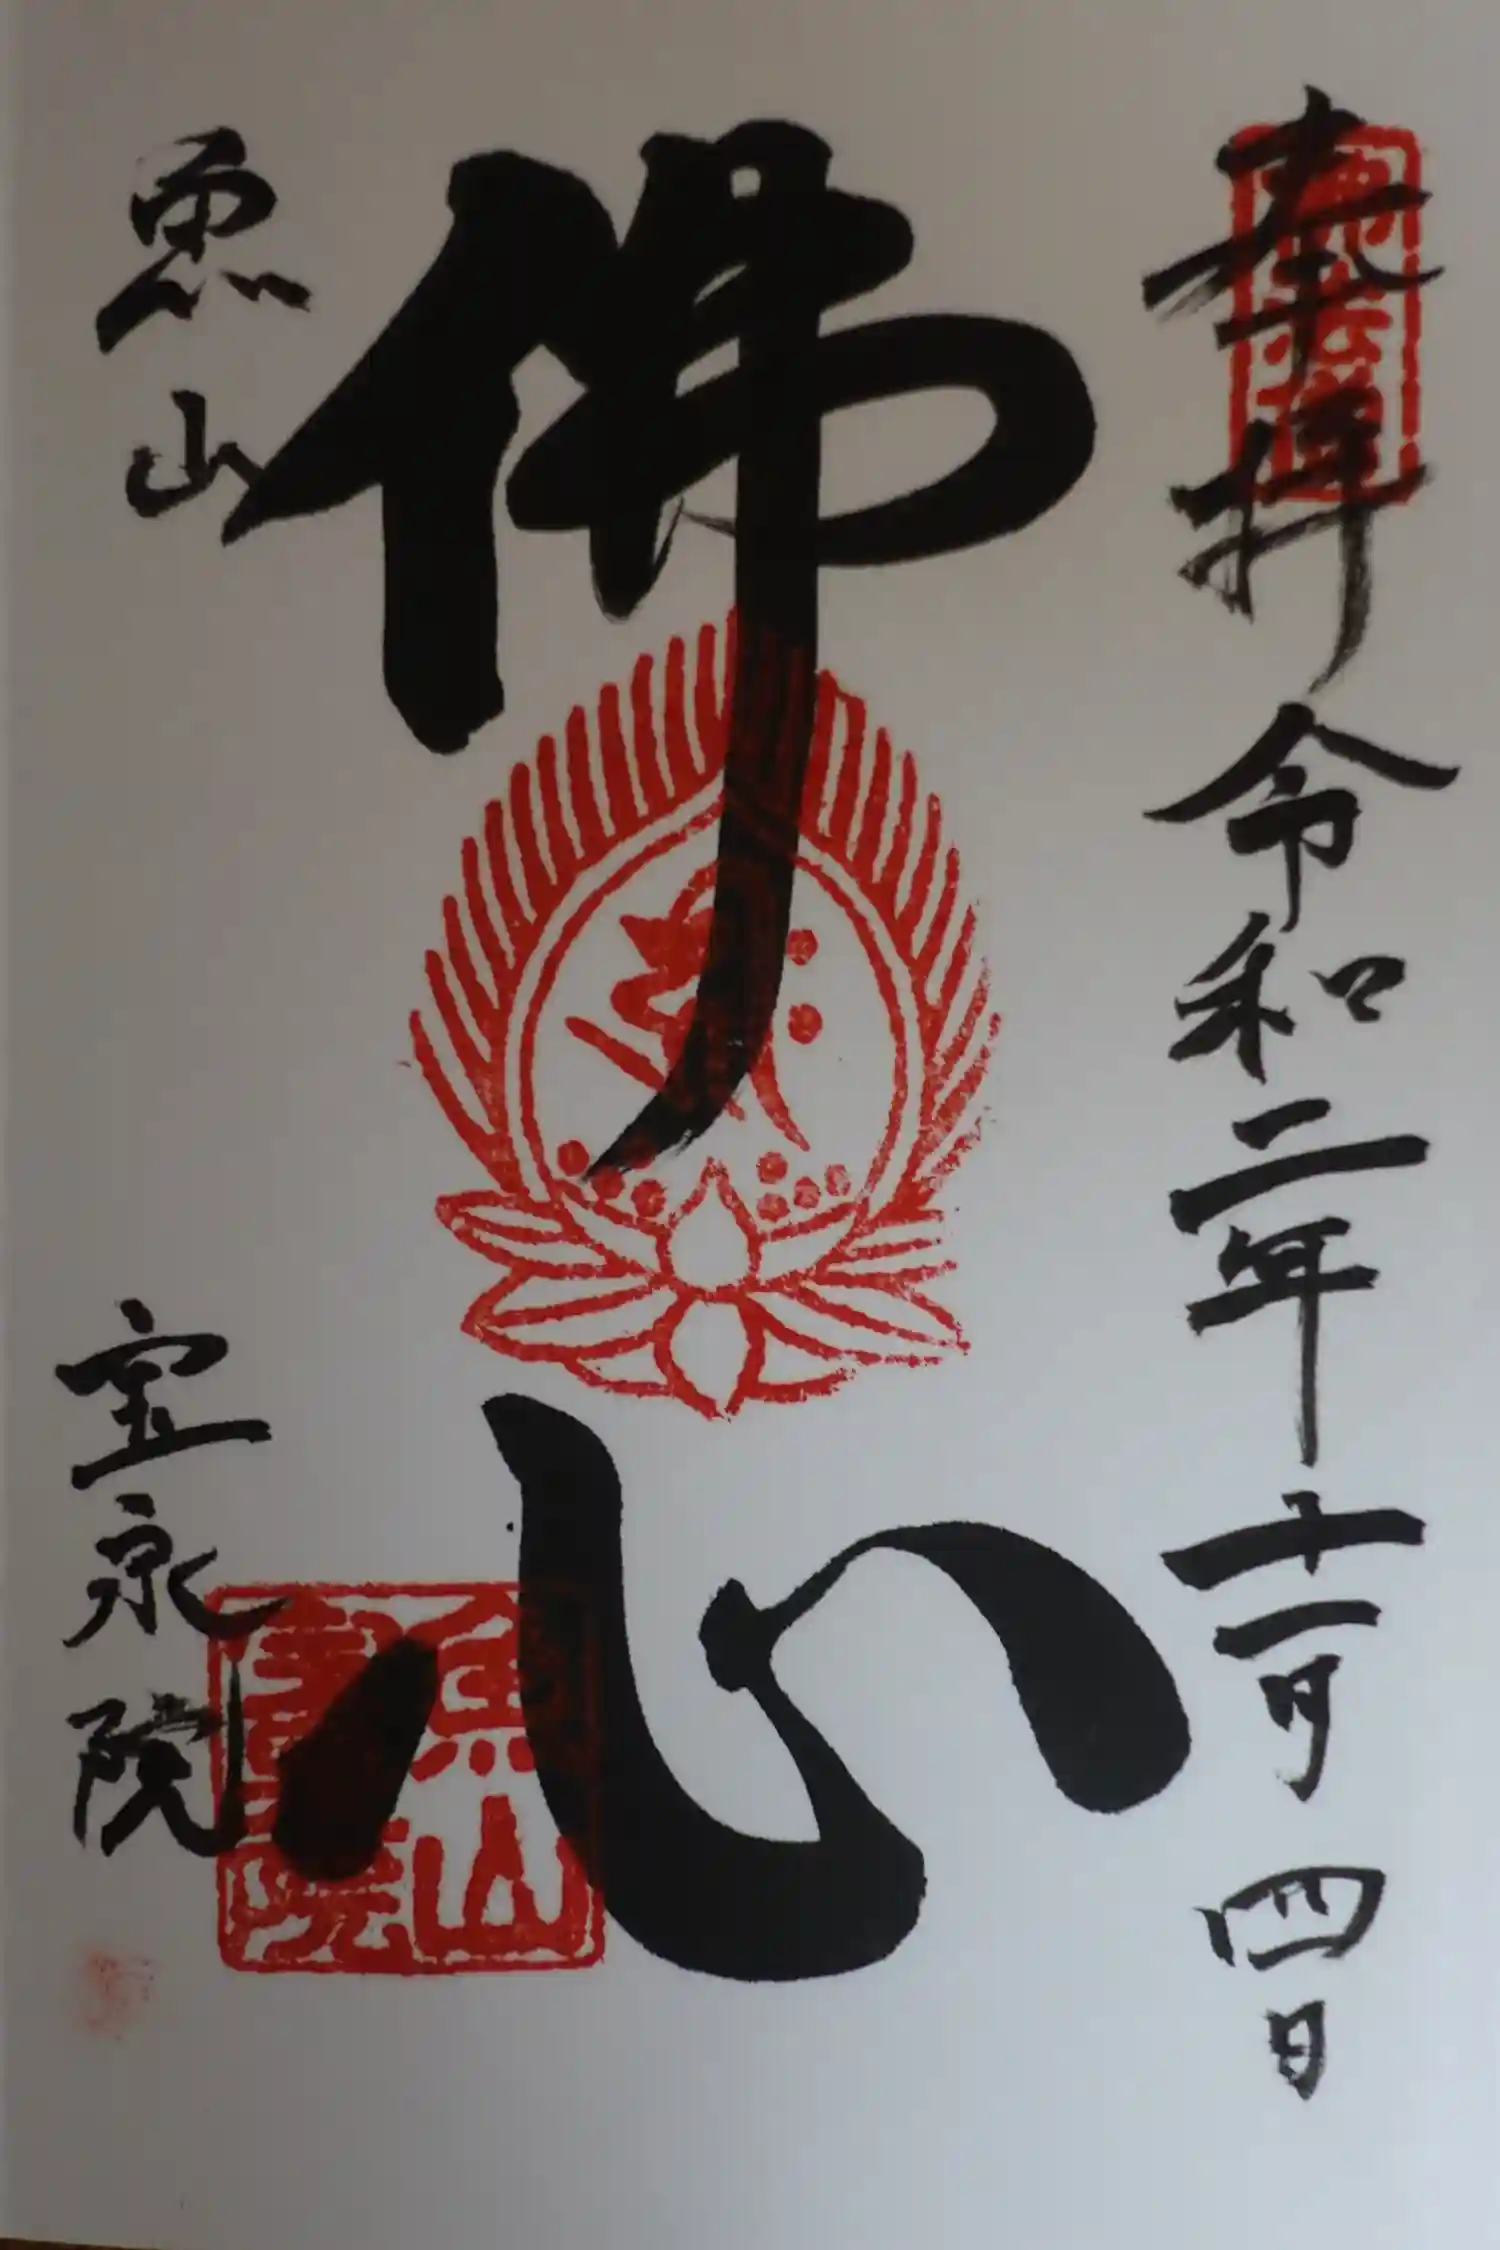 奉拝 令和二年十一月四日
佛心
魚山 宝泉院
魚山
寶泉院